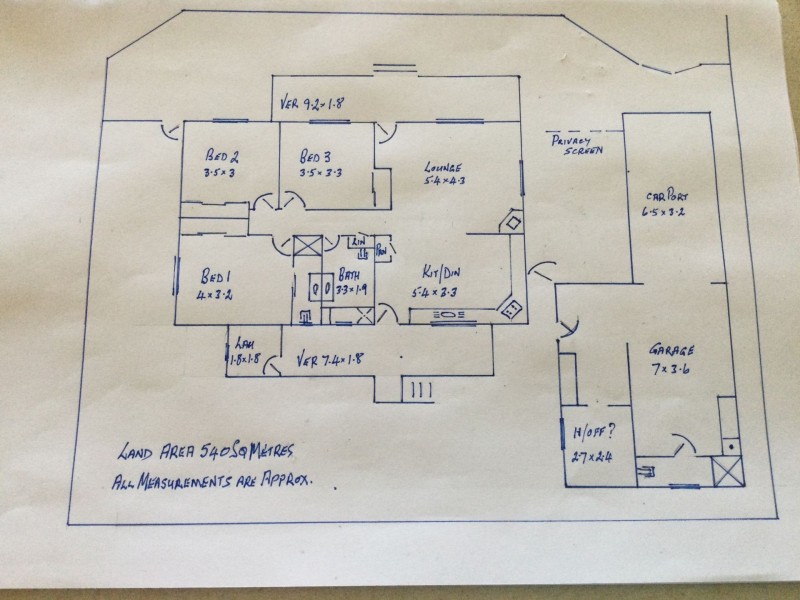 VER 9.2×1.8
BED 2
3.5×3
BED 3
3.5×3.3
LOUNGE
5.4×4.3
PRIVACY
SCREEN
CARPORT
6.5×3.2
LIN
PAN
BED 1
4×3.2
BATH
3.3×1.9
KIT/DIN
5.4×3.3
LAU
1.8×1.8
VER 7.4×1.8
GARAGE
7×3.6
H/OFF?
2.7×2.4
LAND AREA 540SQ METRES
ALL MEASUREMENTS ARE APPROX.